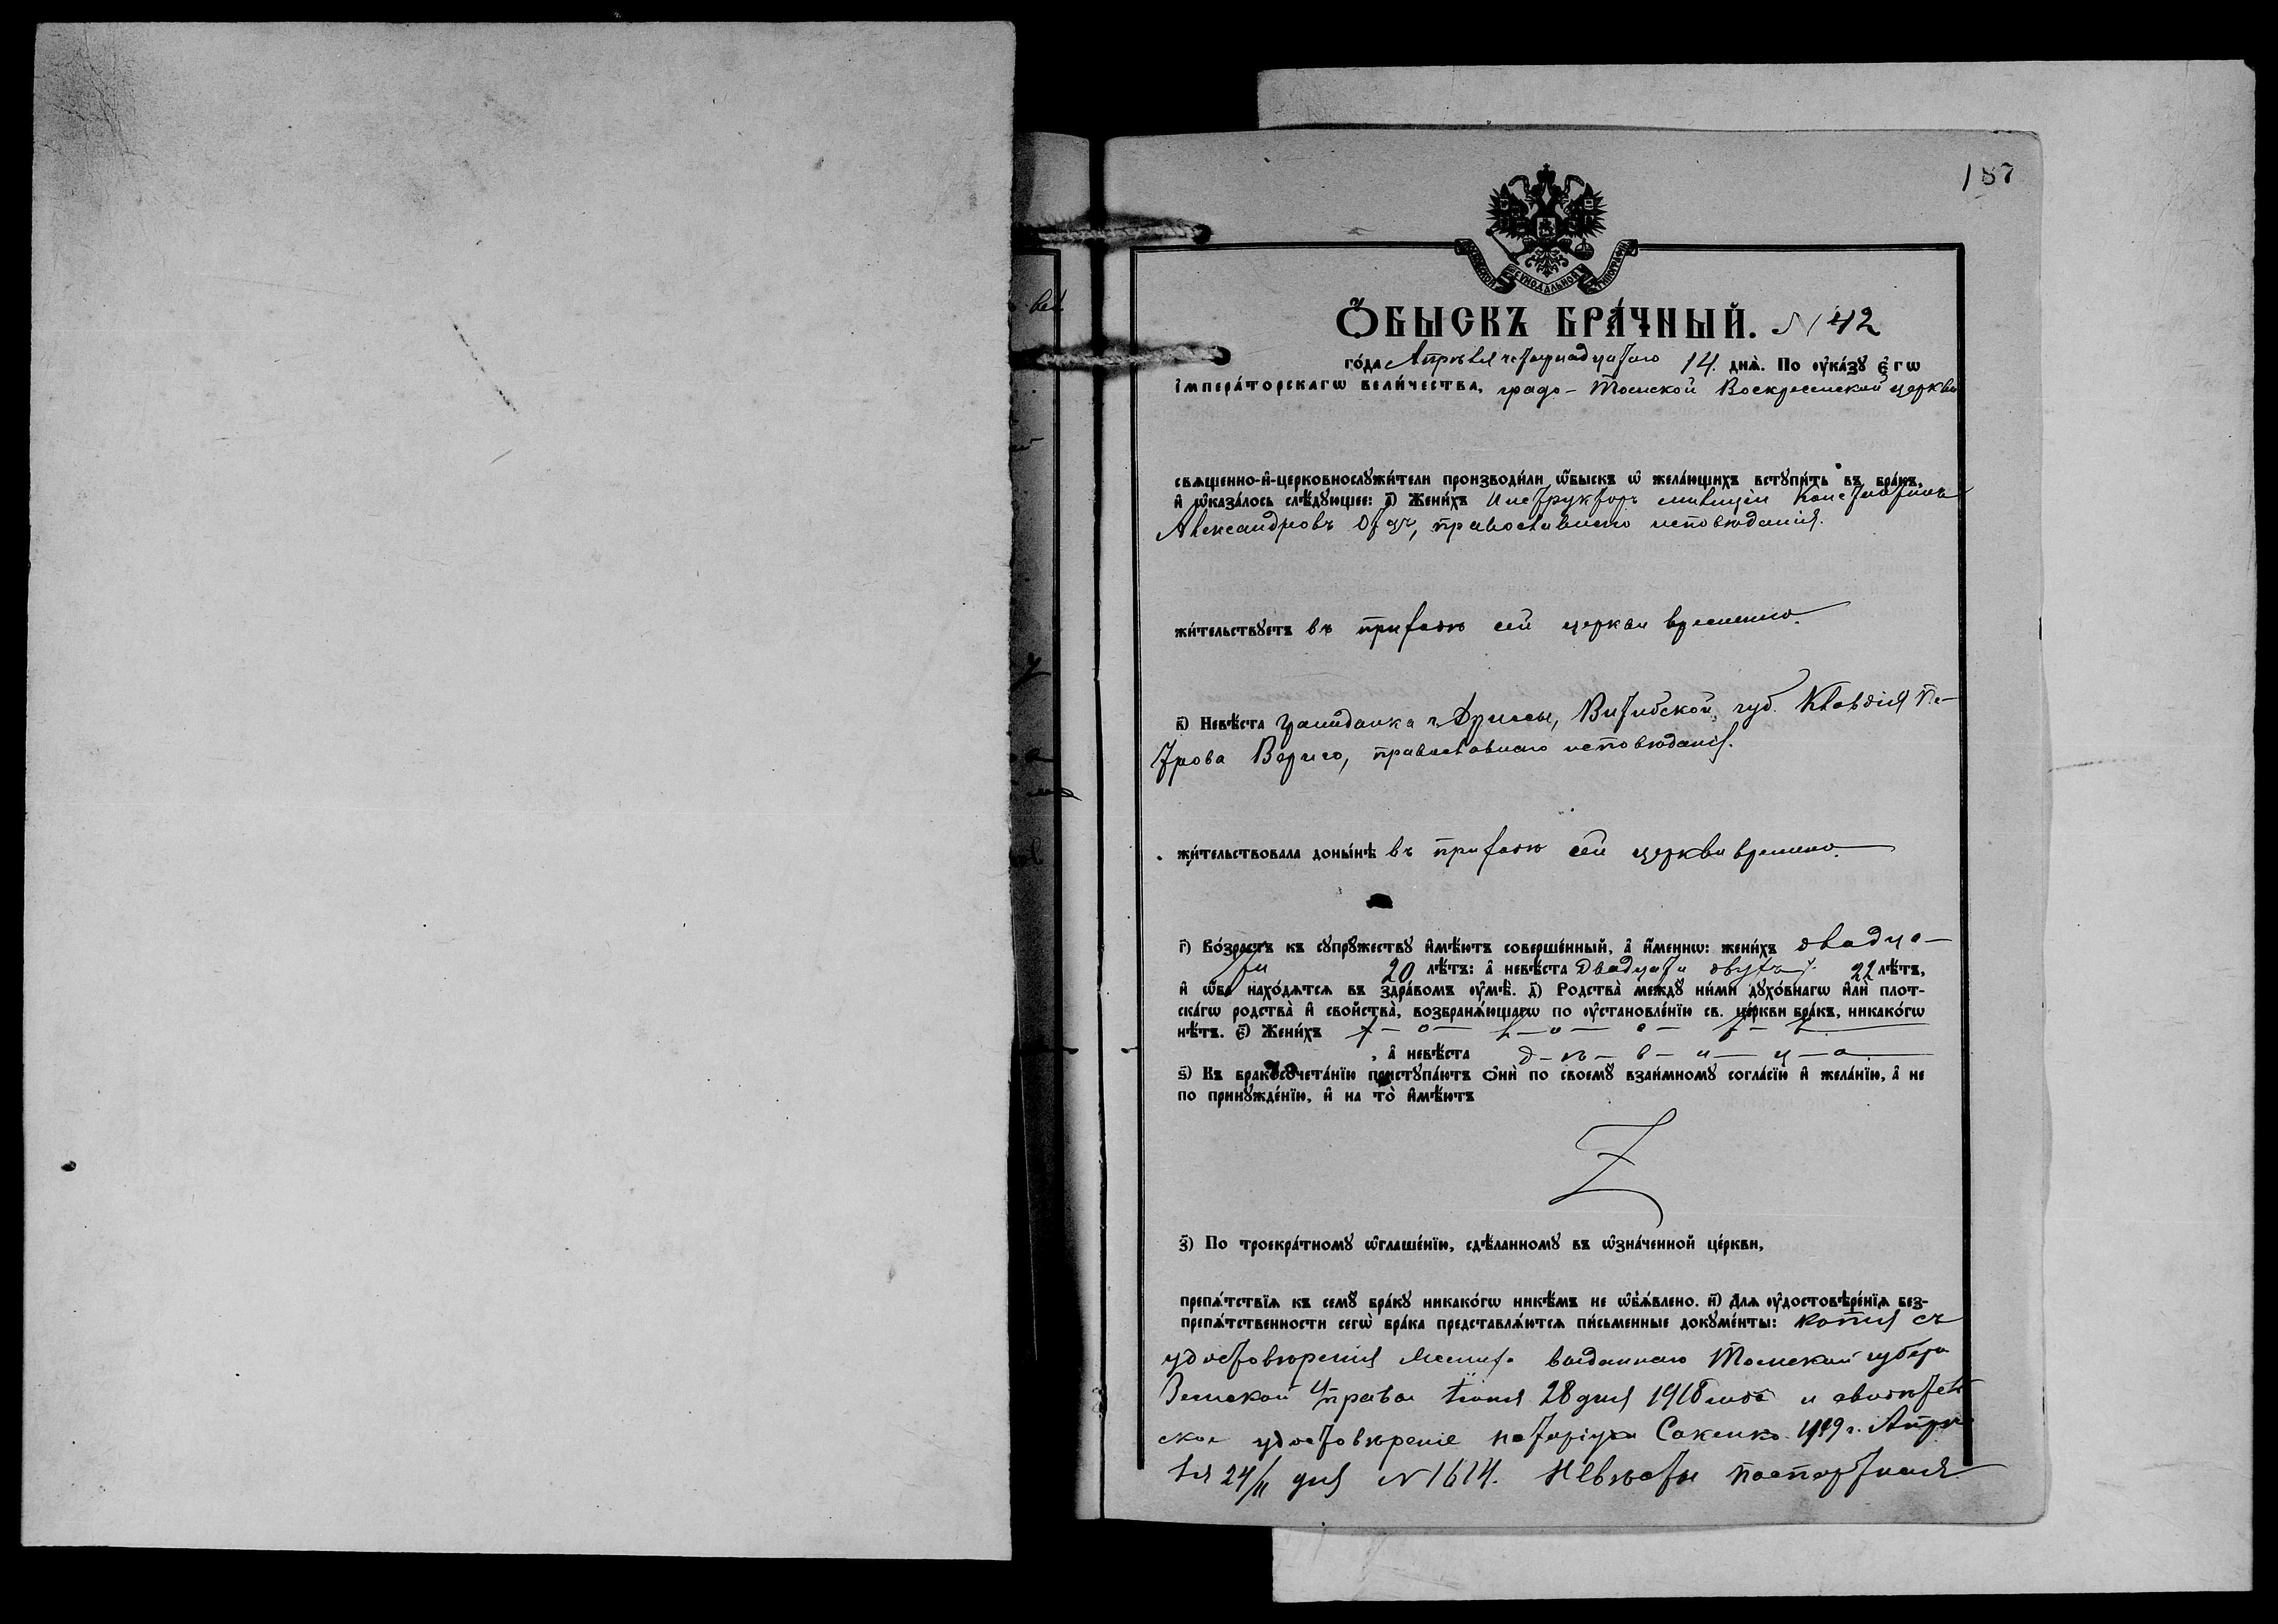 187
СѴНОДАЛЬНОЙ
Ѻ҆БЫСКЪ БРА́ЧНЫЙ. N 42
го́да Апрѣля четырнадцатаго 14. днѧ̀. По ᲂу҆ка́зꙋ є҆гѡ̀
і҆мпера́торскагѡ вели́чества, градо-Томской Воскресенской церкви
свѧще́нно-и҆-церковнослꙋжи́тели производи́ли ѡ҆́быскъ ѡ҆ жела́ющихъ встꙋпи́ть въ бра́къ,
и҆ ѡ҆каза́лось слѣ́дꙋющее: а҃) Жени́хъ Инструкторъ милиціи Константинъ
Александровъ православнаго исповѣданія.
жи́тельствꙋетъ въ приходѣ сей церкви временно.
в҃) Невѣ́ста гражданка г. Дриссы, Витебской губ. Клавдія Пе-
трова православнаго исповѣданія.
жи́тельствовала доны́нѣ въ приходѣ сей церкви временно.
г҃) Во́зрастъ къ сꙋпрꙋ́жествꙋ и҆мѣ́ютъ соверше́нный, а҆ и҆́меннѡ: жени́хъ двадца-
ти 20 лѣ́тъ: а҆ невѣ́ста двадцати двухъ 22 лѣ́тъ,
и҆ ѡ҆́ба нахо́дѧтсѧ въ здра́вомъ ᲂу҆мѣ̀. д҃) Родства̀ междꙋ̀ ни́ми дꙋхо́внагѡ и҆лѝ плот-
ска́гѡ родства̀ и҆ сво́йства, возбранѧ́ющагѡ по ᲂу҆становле́нїю св. це́ркви бра́къ, никако́гѡ
нѣ́тъ. є҃) Жени́хъ х-о-л-о-с-т-ъ
, а҆ невѣ́ста д-ѣ-в-и-ц-а
ѕ҃) Къ бракосочета́нїю пристꙋпа́ютъ ѻ҆нѝ по своемꙋ̀ взаи́мномꙋ согла́сїю и҆ жела́нїю, а҆ не
по принꙋжде́нїю, и҆ на то̀ и҆мѣ́ютъ
з҃) По троекра́тномꙋ ѡ҆глаше́нїю, сдѣ́ланномꙋ въ ѡ҆зна́ченной це́ркви,
препѧ́тствїѧ къ семꙋ̀ бра́кꙋ никако́гѡ никѣ́мъ не ѡ҆б̾ѧ́влено. и҃) Длѧ ᲂу҆достовѣре́нїѧ без-
препѧ́тственности сегѡ̀ бра́ка представлѧ́ютсѧ пи́сьменные докꙋме́нты: копія съ
удостовѣренія жениха выданнаго Томской губерн
Земской Управы Іюня 28 дня 1918 года и свидѣтель
ское удостовѣреніе нотаріуса 1919 г. Апрѣ
ля 24/11 дня N 1614. Невѣсты паспортная